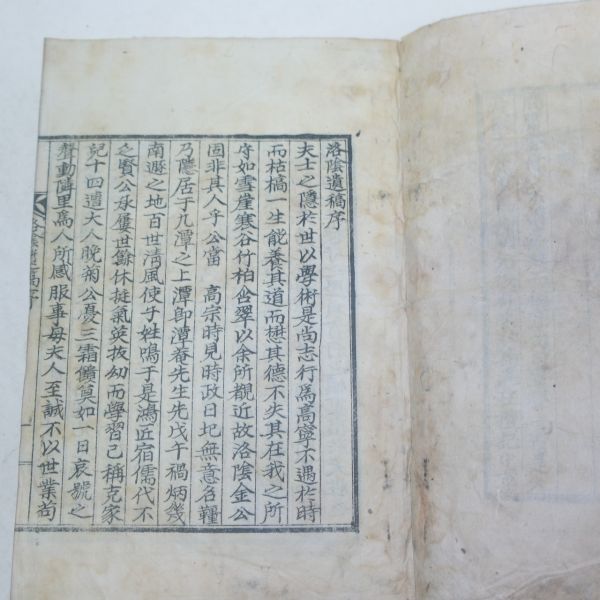 洛陰遺稿序
夫士之隱於世以學術是尚志行為高寧不遇於時
而枯槁一生能養其道而懋其德不失其在我之所
守如雪崖寒谷竹柏含翠以余所觀近故洛陰金公
固非其人乎公當 高宗時見時政日圮無意名韁
乃隱居于几潭之上潭卽潭菴先生先戊午禍炳幾
南遯之地百世淸風使子姓鳴于是鴻匠宿儒代不
乏賢公承屢世餘休挺氣英拔幼而學習已稱克家
兒十四遭大人晩菊公憂三霜儀奠如一日哀號之
聲動隣里爲人所感服事母夫人至誠不以世業苟
洛陰遺稿序